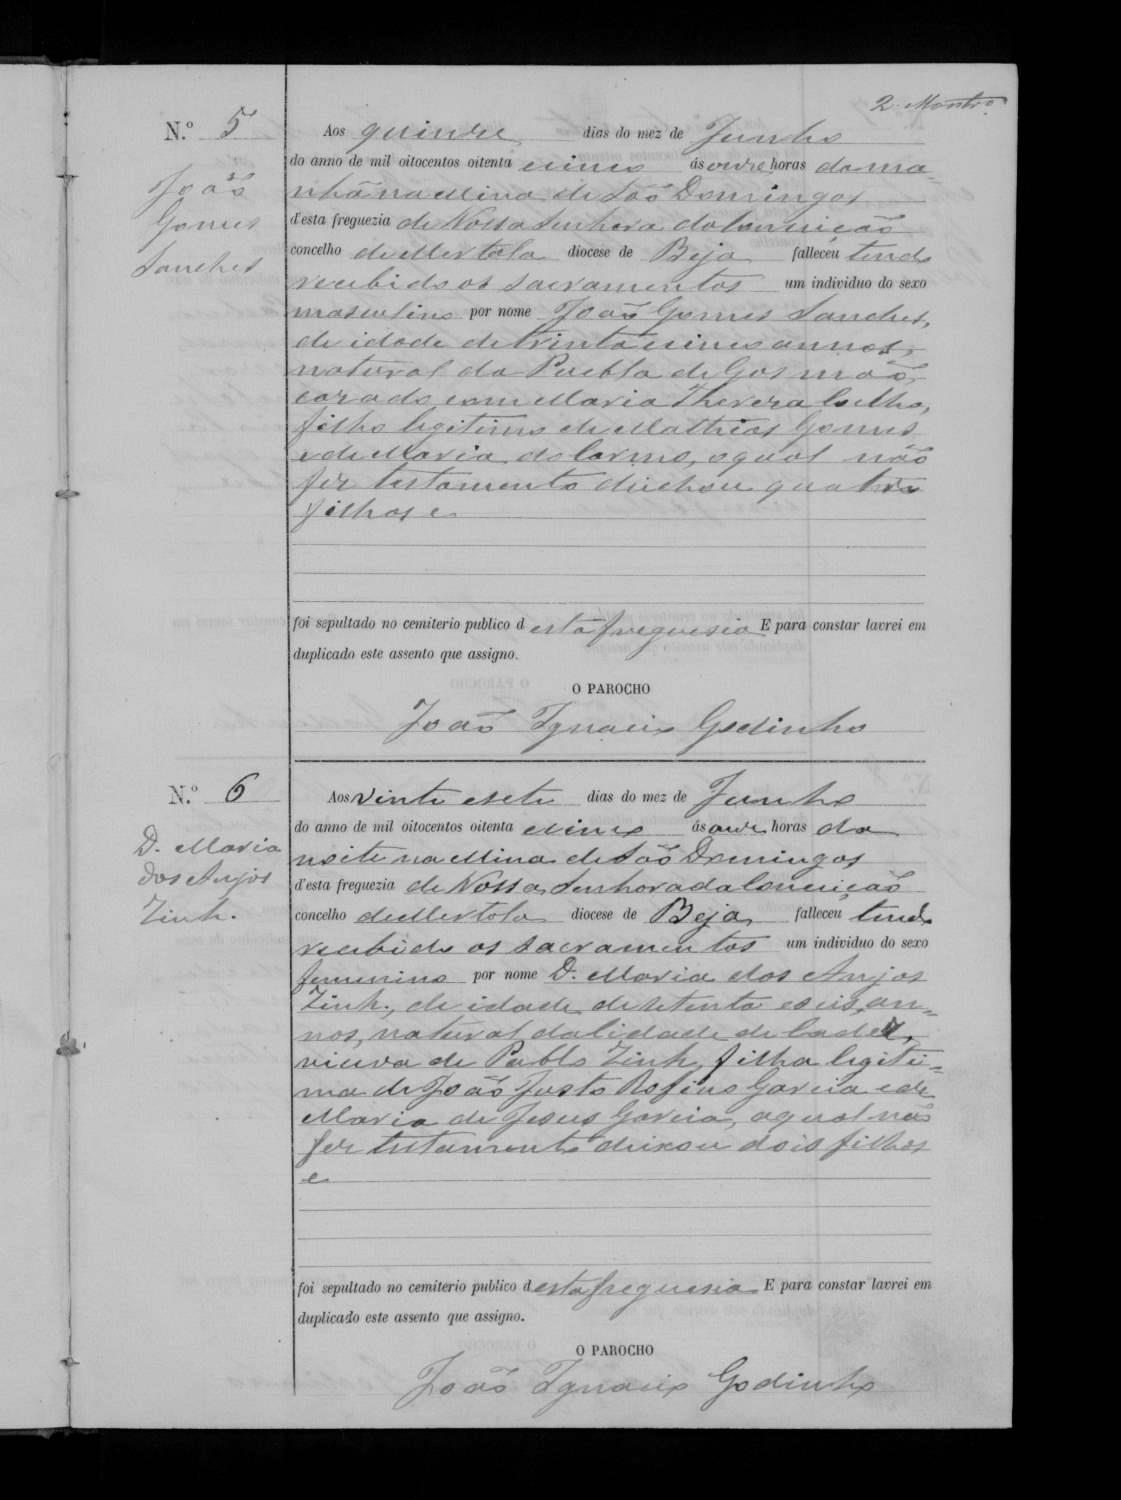 2
N.º 5
João
Gomes
Sanches
Aos quinze dias do mez de Junho
do anno de mil oitocentos oitenta e cinco ás onze horas da ma-
nhã na Mina de São Domingos
d'esta freguezia de Nossa Senhora da Conceição
concelho de Mertola diocese de Beja falleceu tendo
recebido os sacramentos um individuo do sexo
masculino por nome João Gomes Sanches,
de idade de trinta e cinco annos,
natural da Puebla de Gosmão,
casado com Maria Thereza Coelho,
filho legitimo de Mathias Gomes
e de Maria do Carmo, o qual não
fez testamento deichou quatro
filhos e
foi sepultado no cemiterio publico d esta freguesia E para constar lavrei em
duplicado este assento que assigno.
O PAROCHO
João Ignacio Godinho
N.º 6
D. Maria
dos Anjos
Zinh.
Aos vinte e sete dias do mez de Junho
do anno de mil oitocentos oitenta e cinco ás onze horas da
noite na Mina de São Domingos
d'esta freguezia de Nossa Senhora da Conceição
concelho de Mertola diocese de Beja falleceu tendo
recebido os sacramentos um individuo do sexo
femenino por nome D. Maria dos Anjos
Zinh., de idade de setenta e seis an-
nos, natural da Cidade de Cadez,
viuva de Pablo Zinh, filha legiti-
ma de João Justo Rofino Garcia e de
Maria de Jesus Garcia, a qual não
fez testamento deixou dois filhos
e
foi sepultado no cemiterio publico d esta freguesia E para constar lavrei em
duplicado este assento que assigno.
O PAROCHO
João Ignacio Godinho